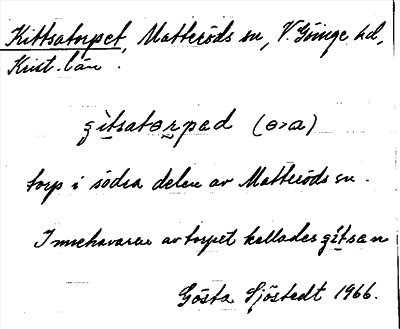 Kittsatorpet, Matteröds sn, V. Göinge hd,
Krist. län.
gìtsatɵrpad (ɵ>a)
torp i södra delen av Matteröds sn.
Innehavaren av torpet kallades gítsan
Gösta Sjöstedt 1966.